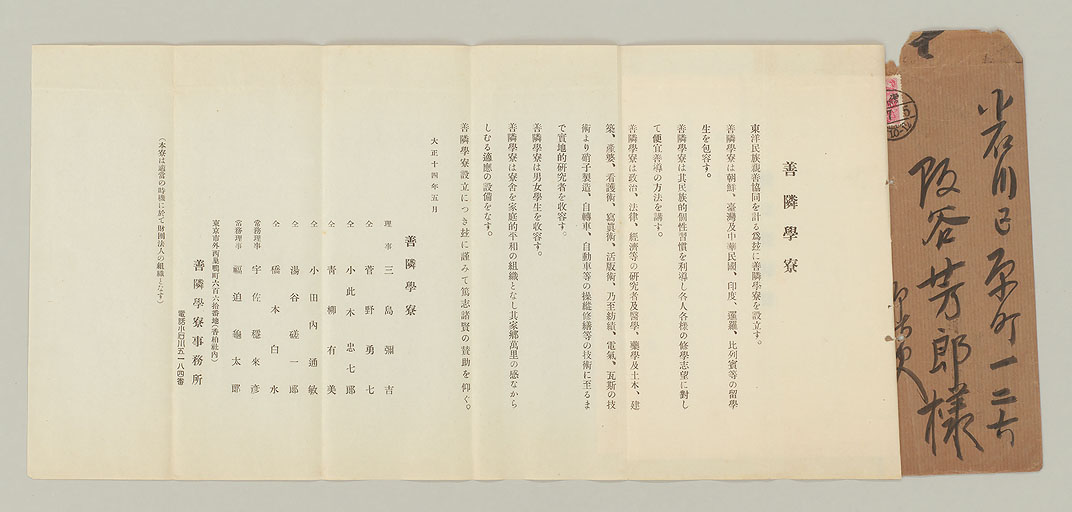 小石川区原町一二六
阪谷芳郎様
善隣學寮
東洋民族親善協同を計る爲玆に善隣學寮を設立す。
善隣學寮は朝鮮、臺灣及中華民國、印度、暹羅、比列賓等の留學
生を包容す。
善隣學寮は其民族的個性習慣を利導し各人各樣の修學志望に對し
て便宜善導の方法を講す。
善隣學寮は政治、法律、經濟等の研究者及醫學、藥學及土木、建
築、產婆、看護術、寫眞術、活版術、乃至紡績、電氣、瓦斯の技
術より硝子製造、自轉車、自動車等の操縱修繕等の技術に至るま
で實地的研究者を收容す。
善隣學寮は男女學生を收容す。
善隣學寮は寮舍を家庭的平和の組織となし其家鄕萬里の感なから
しむる適應の設備をなす。
善隣學寮設立につき玆に謹みて篤志諸賢の賛助を仰ぐ。
大正十四年五月
善隣學寮
理事 三島彌吉
仝 菅野勇七
仝 小此木忠七郞
仝 靑柳有美
仝 小田內通敏
仝 湯谷磋一郞
仝 橋本白水
常務理事 宇佐穩來彥
常務理事 福迫龜太郞
善隣學寮事務所
東京市外西巢鴨町六百六拾番地(善柏社內)
電話小石川五一八四番
(本寮は適當の時機に於て財團法人の組織となす)